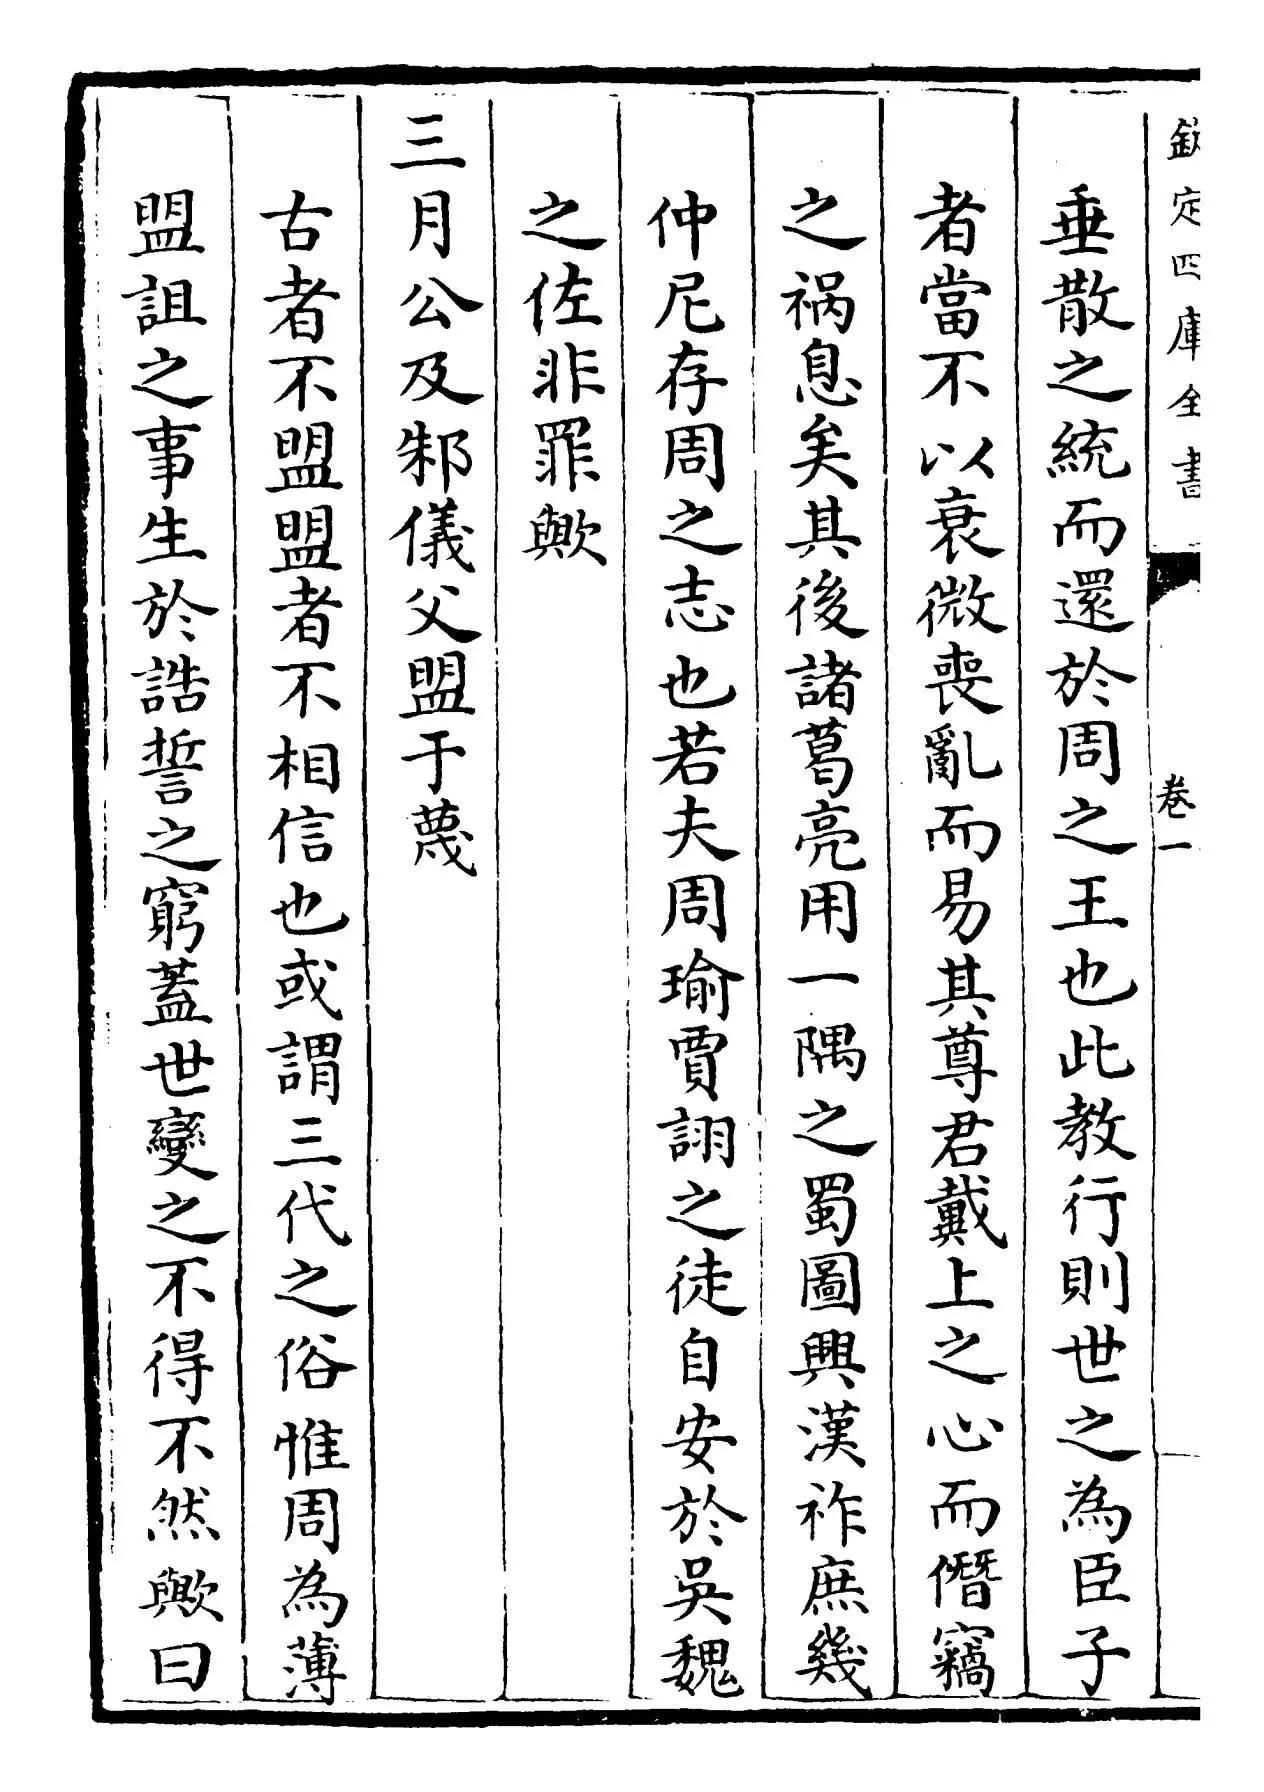 欽定四庫全書
卷一
垂散之統而還於周之王也此教行則世之為臣子
者當不以衰微喪亂而易其尊君戴上之心而僭竊
之禍息矣其後諸葛亮用一隅之蜀圖興漢祚庶幾
仲尼存周之志也若夫周瑜賈詡之徒自安於吳魏
之佐非罪歟
三月公及邾儀父盟于蔑
古者不盟盟者不相信也或謂三代之俗惟周為薄
盟詛之事生於誥誓之窮蓋世變之不得不然歟曰